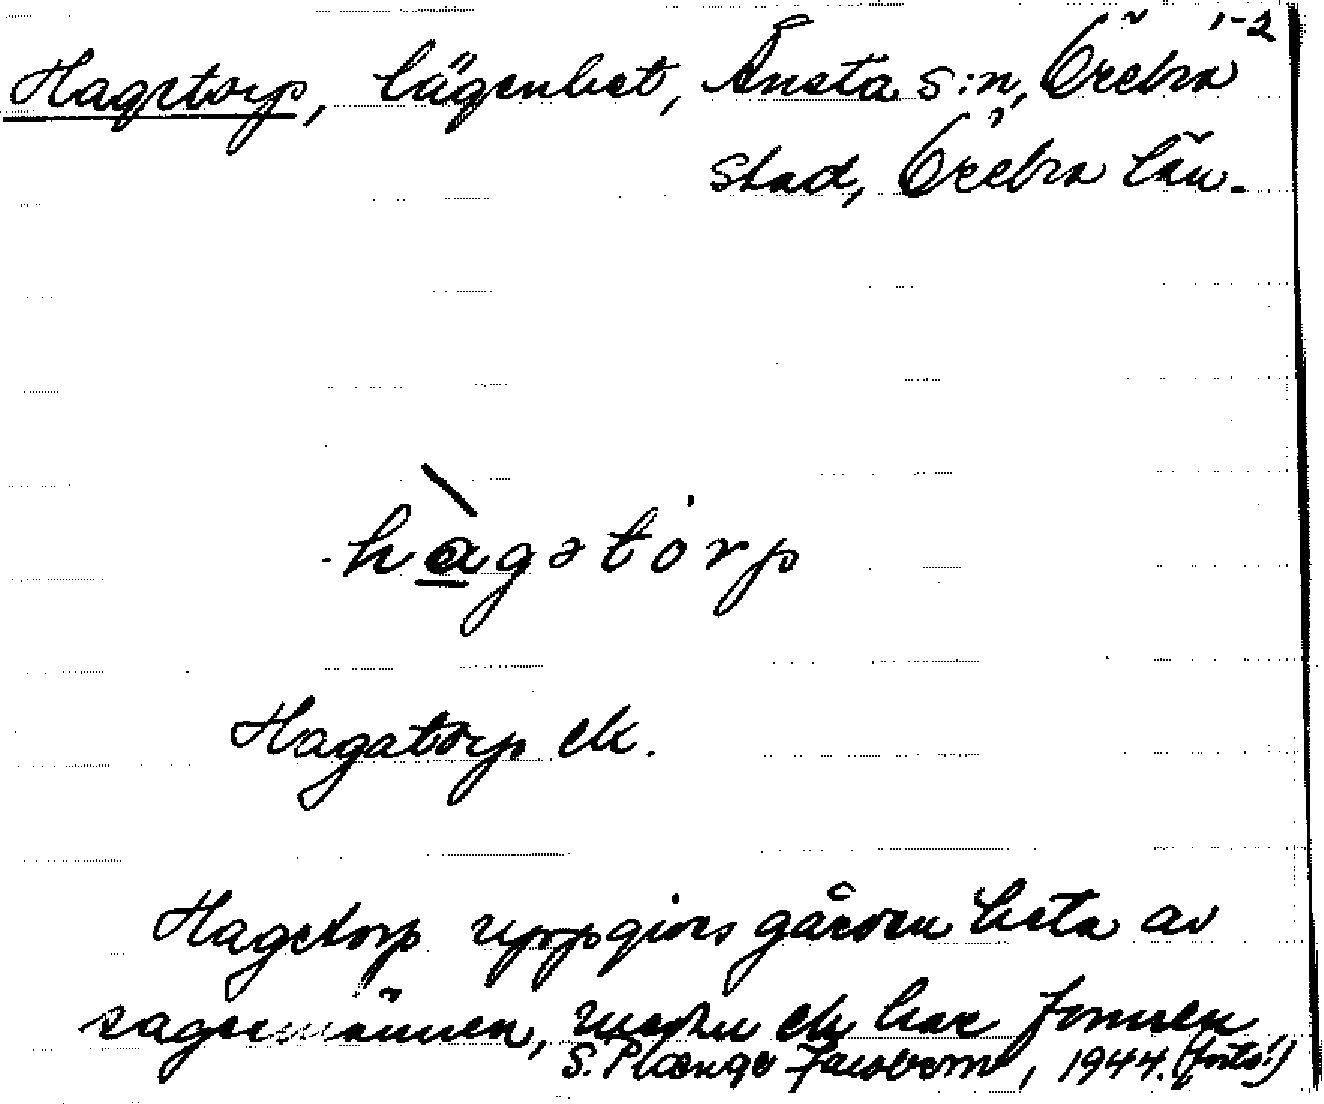 1-2
Hagetorp, lägenhet, Ånsta s:n, Örebro
stad, Örebro län.
hàgətórp
Hagatorp ek.
Hagetorp uppgives gården heta av
sagesmännen, medan ek har formen
S. Plænge Jacobson, 1944. (forts!)